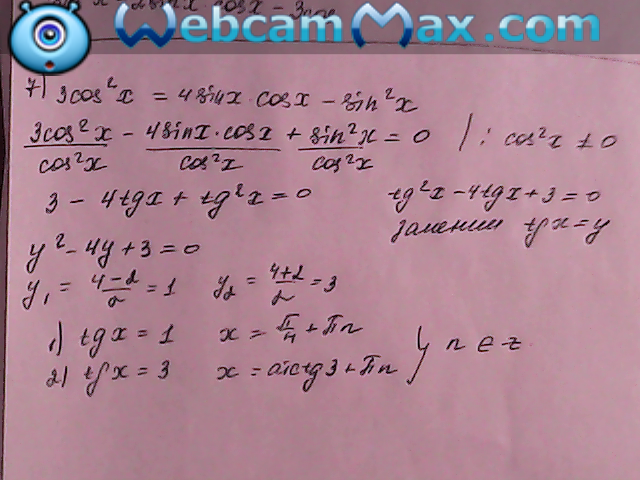 WebcamMax.com
7) 3cos²x = 4sinx·cosx – sin²x
3cos²x/cos²x – 4sinx·cosx/cos²x + sin²x/cos²x = 0 | : cos²x ≠ 0
3 – 4tgx + tg²x = 0 tg²x – 4tgx + 3 = 0
заменим tgx = y
y² – 4y + 3 = 0
y₁ = (4–2)/2 = 1 y₂ = (4+2)/2 = 3
1) tgx = 1 x = π/4 + πn
2) tgx = 3 x = arctg3 + πn } n ∈ z